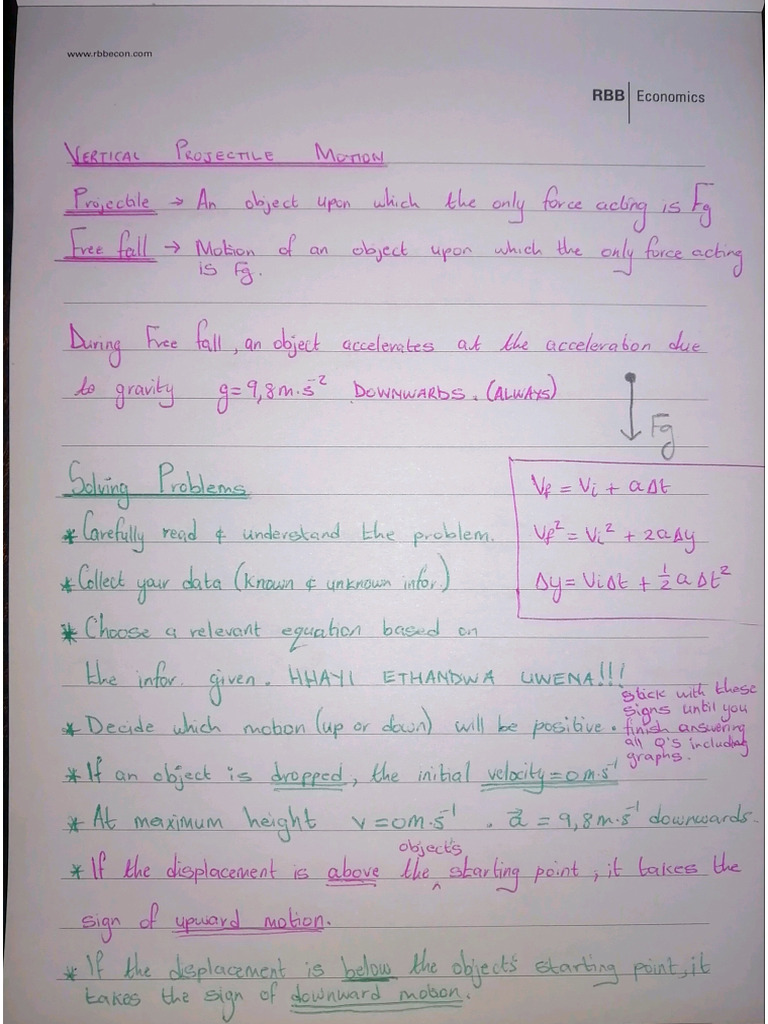 www.rbbecon.com
RBB | Economics
VERTICAL PROJECTILE MOTION
Projectile → An object upon which the only force acting is Fg
Free fall → Motion of an object upon which the only force acting
is Fg.
During Free fall, an object accelerates at the acceleration due
to gravity g=9,8m·s⁻² DOWNWARDS. (ALWAYS)
Fg
Solving Problems
Vf = Vi + aΔt
Vf² = Vi² + 2aΔy
Δy = ViΔt + ½aΔt²
* Carefully read & understand the problem.
* Collect your data (known & unknown infor.)
* Choose a relevant equation based on
the infor. given. HHAYI ETHANDWA UWENA!!!
* Decide which motion (up or down) will be positive.
stick with these
signs until you
finish answering
all Q's including
graphs.
* If an object is dropped, the initial velocity=0m·s⁻¹
* At maximum height v=0m·s⁻¹ . a⃗ = 9,8m·s⁻¹ downwards.
* If the displacement is above the object's starting point, it takes the
sign of upward motion.
* If the displacement is below the object's starting point, it
takes the sign of downward motion.